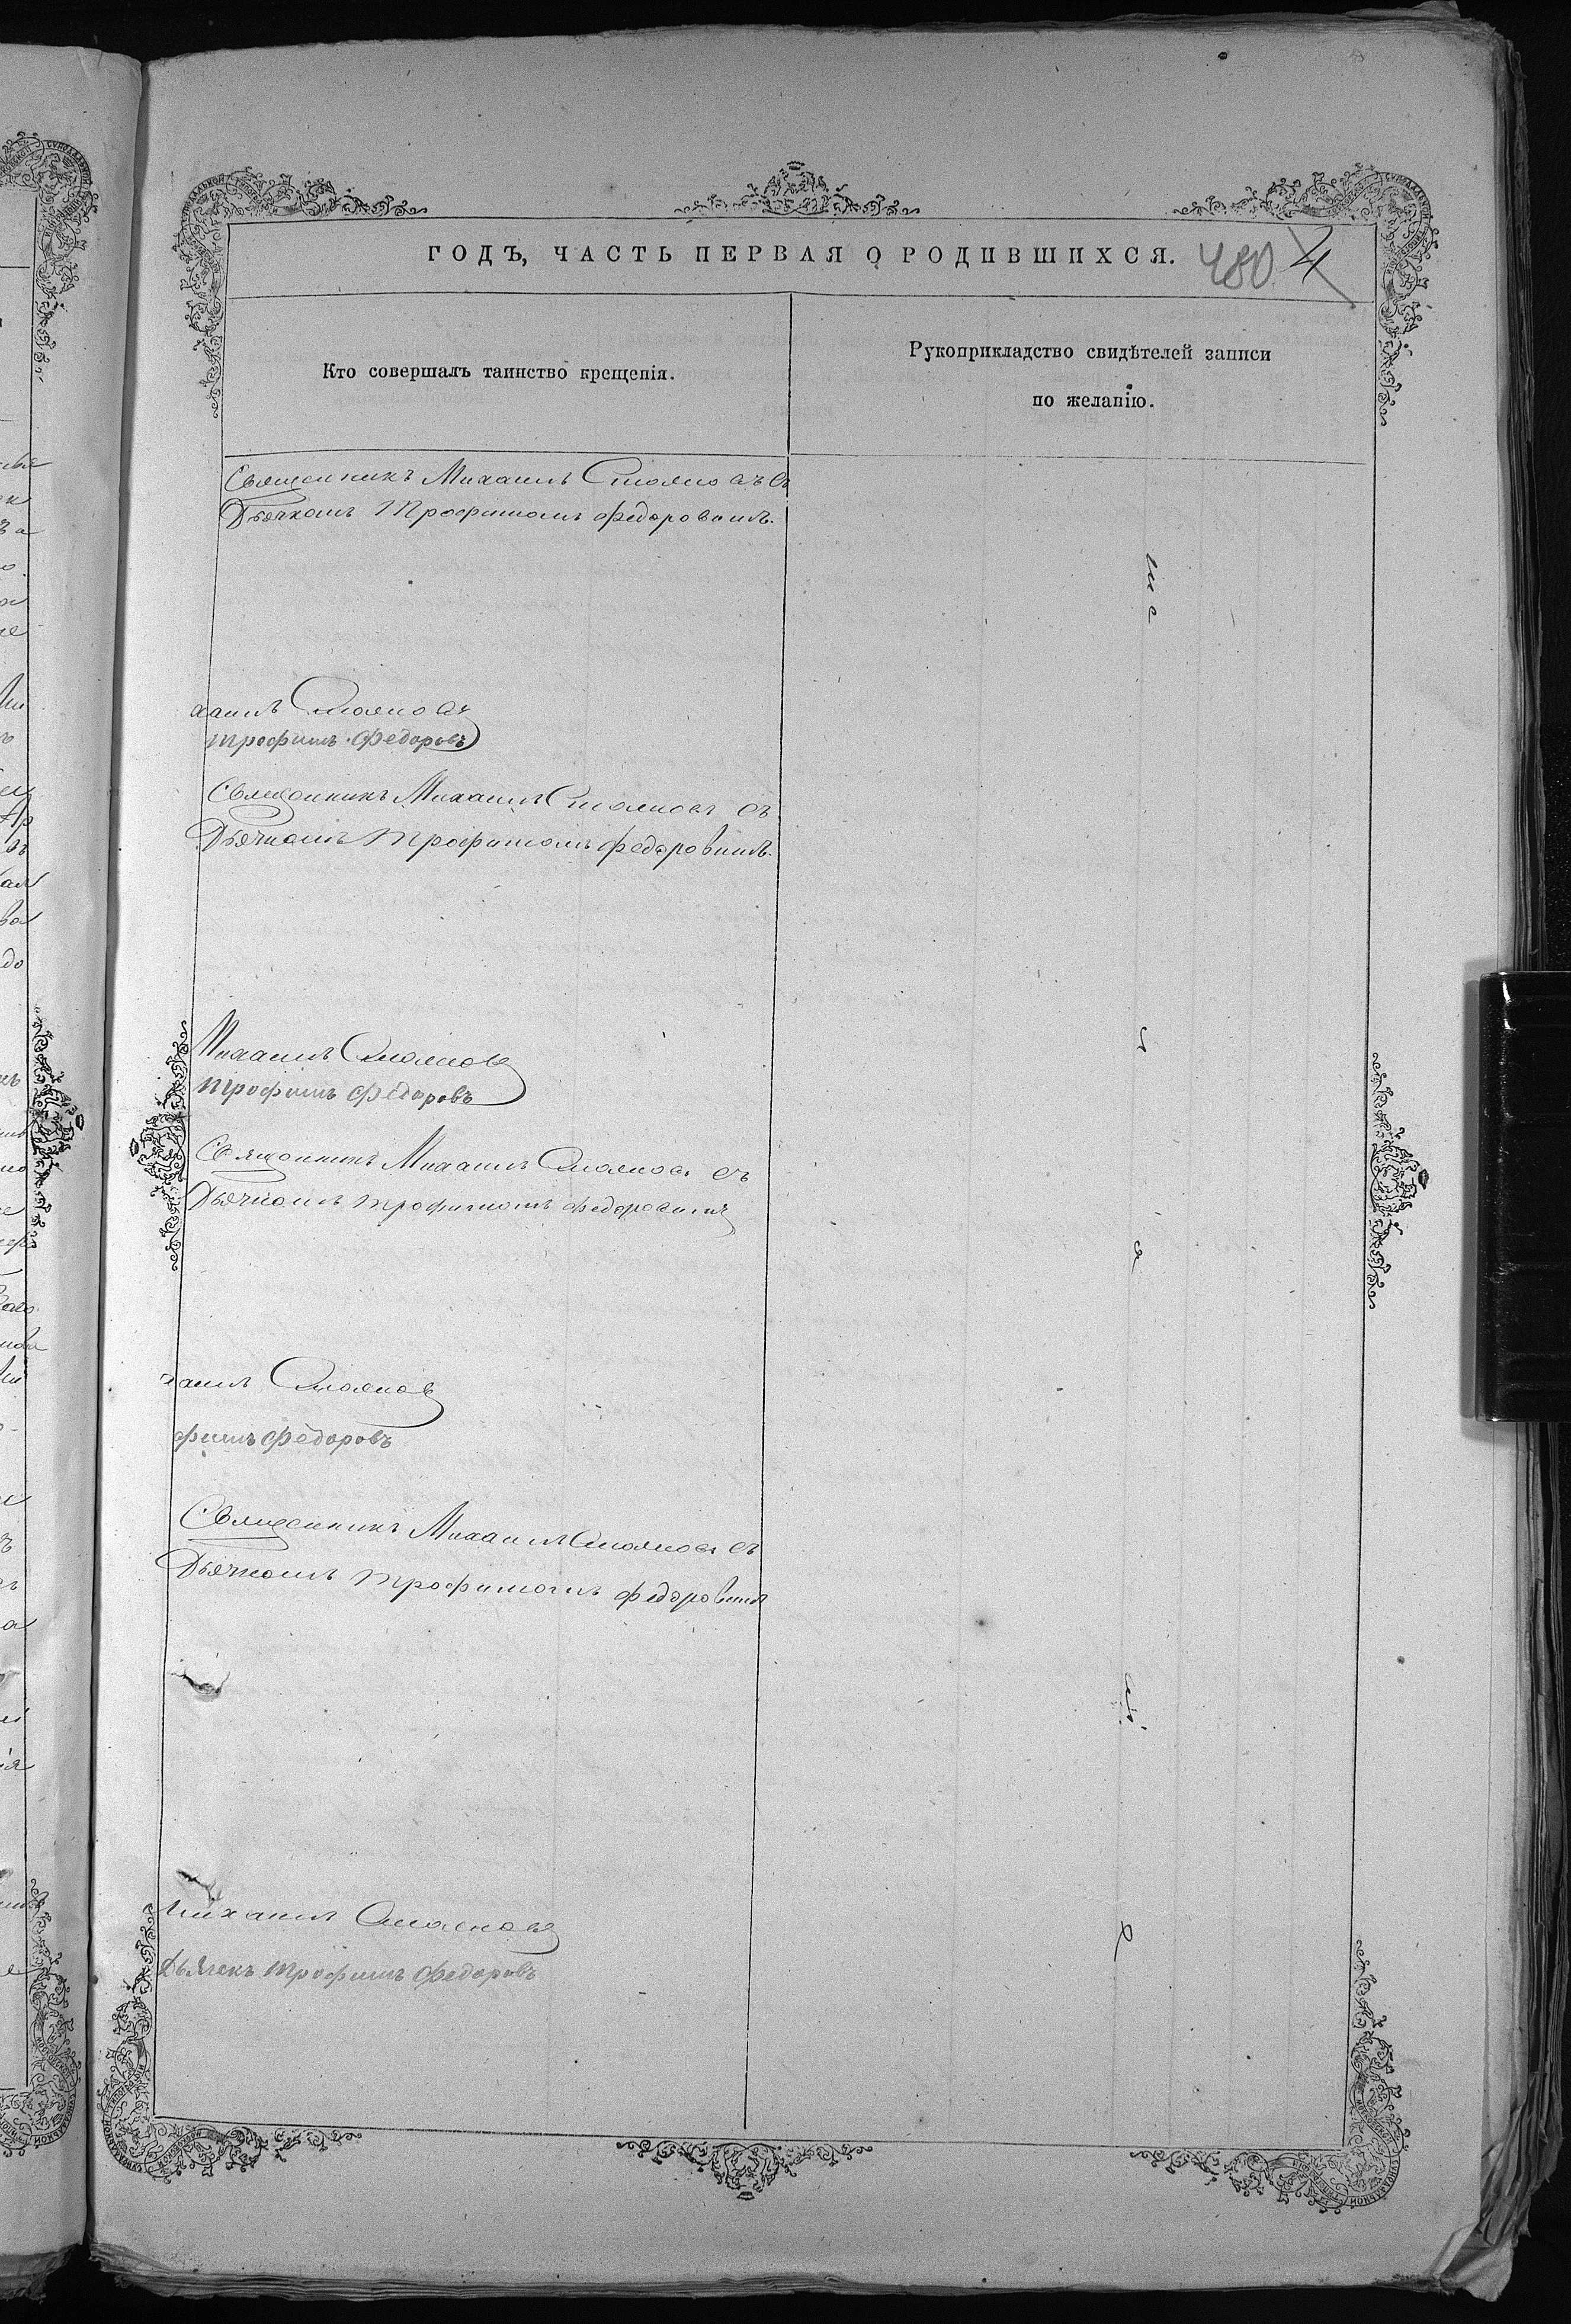 ГОДЪ, ЧАСТЬ ПЕРВАЯ О РОДИВШИХСЯ. 480 4
Кто совершалъ таинство крещенія.
Рукоприкладство свидѣтелей записи
по желанію.
Священникъ Михаилъ Стояновъ съ
Дьячкомъ Трофимомъ Федоровымъ.
хаилъ Стояновъ
Трофимъ Федоровъ
Священникъ Михаилъ Стояновъ съ
Дьячкомъ Трофимомъ Федоровымъ.
Михаилъ Стояновъ
Трофимъ Федоровъ
Священникъ Михаилъ Стояновъ съ
Дьячкомъ Трофимомъ Федоровымъ
хаилъ Стояновъ
фимъ Федоровъ
Священникъ Михаилъ Стояновъ съ
Дьячкомъ Трофимомъ Федоровымъ
Михаилъ Стояновъ
Дьячекъ Трофимъ Федоровъ